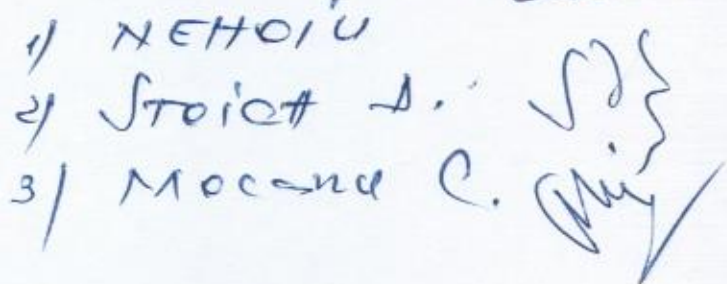 1) NEHOIU
2) STOICA D.
3) Mocanu C.